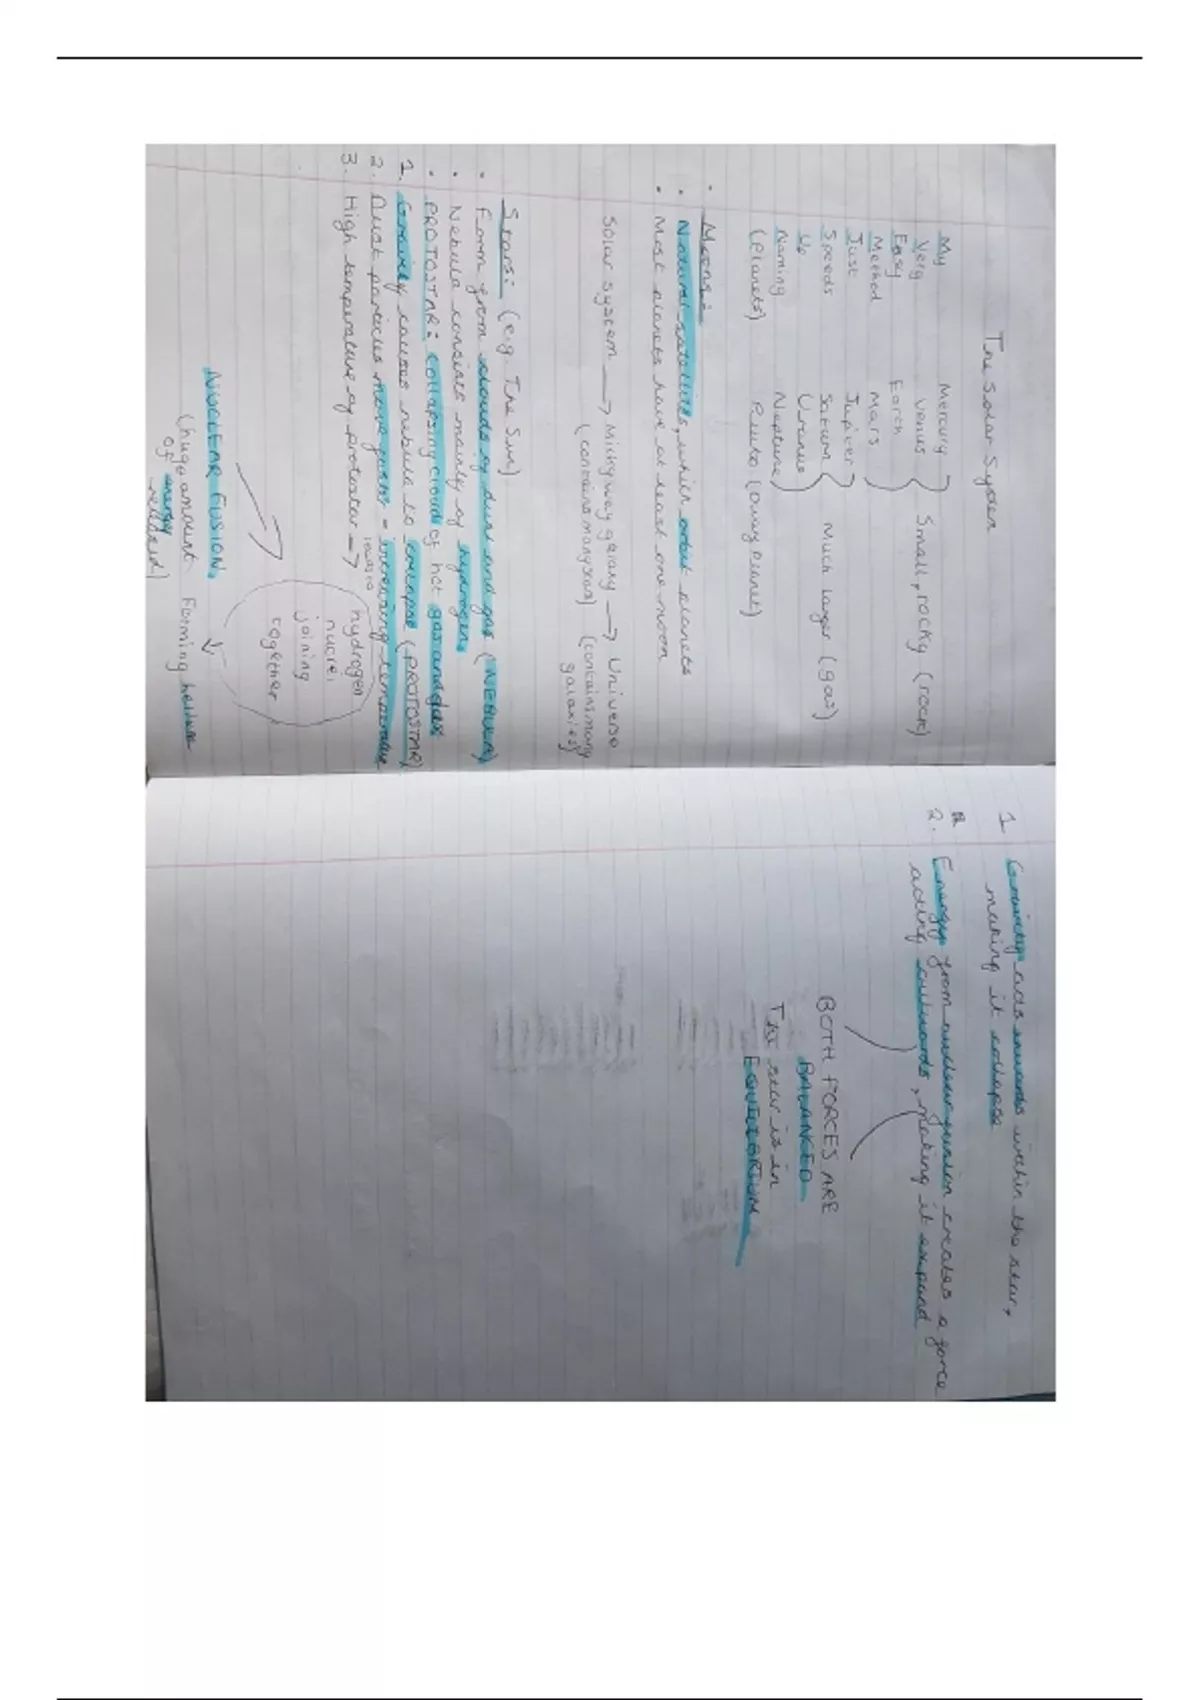 The Solar System
My Mercury
Very Venus
Easy Earth
Method Mars
Small, rocky (rock)
Just Jupiter
Speeds Saturn
Up Uranus
Naming Neptune
Much larger (gas)
(Planets) Pluto (Dwarf Planet)
Moons:
• Natural satellites, which orbit planets
• Most planets have at least one moon
Solar System → Milky way galaxy → Universe
(contains many stars) (contains many
galaxies)
Stars: (e.g. The Sun)
• Form from clouds of dust and gas (NEBULA)
• Nebula consists mainly of hydrogen.
• PROTOSTAR: collapsing cloud of hot gas and dust
1. Gravity causes nebula to collapse (PROTOSTAR)
2. Dust particles move = increasing temperature
3. High temperature of protostar →
leads to
hydrogen
nuclei
joining
together
NUCLEAR FUSION.
(huge amount
of energy
released)
Forming helium
1 Gravity acts inwards within the star,
making it collapse
2. Energy from nuclear fusion creates a force
acting outwards, making it expand
BOTH FORCES ARE
BALANCED
The star is in
EQUILIBRIUM